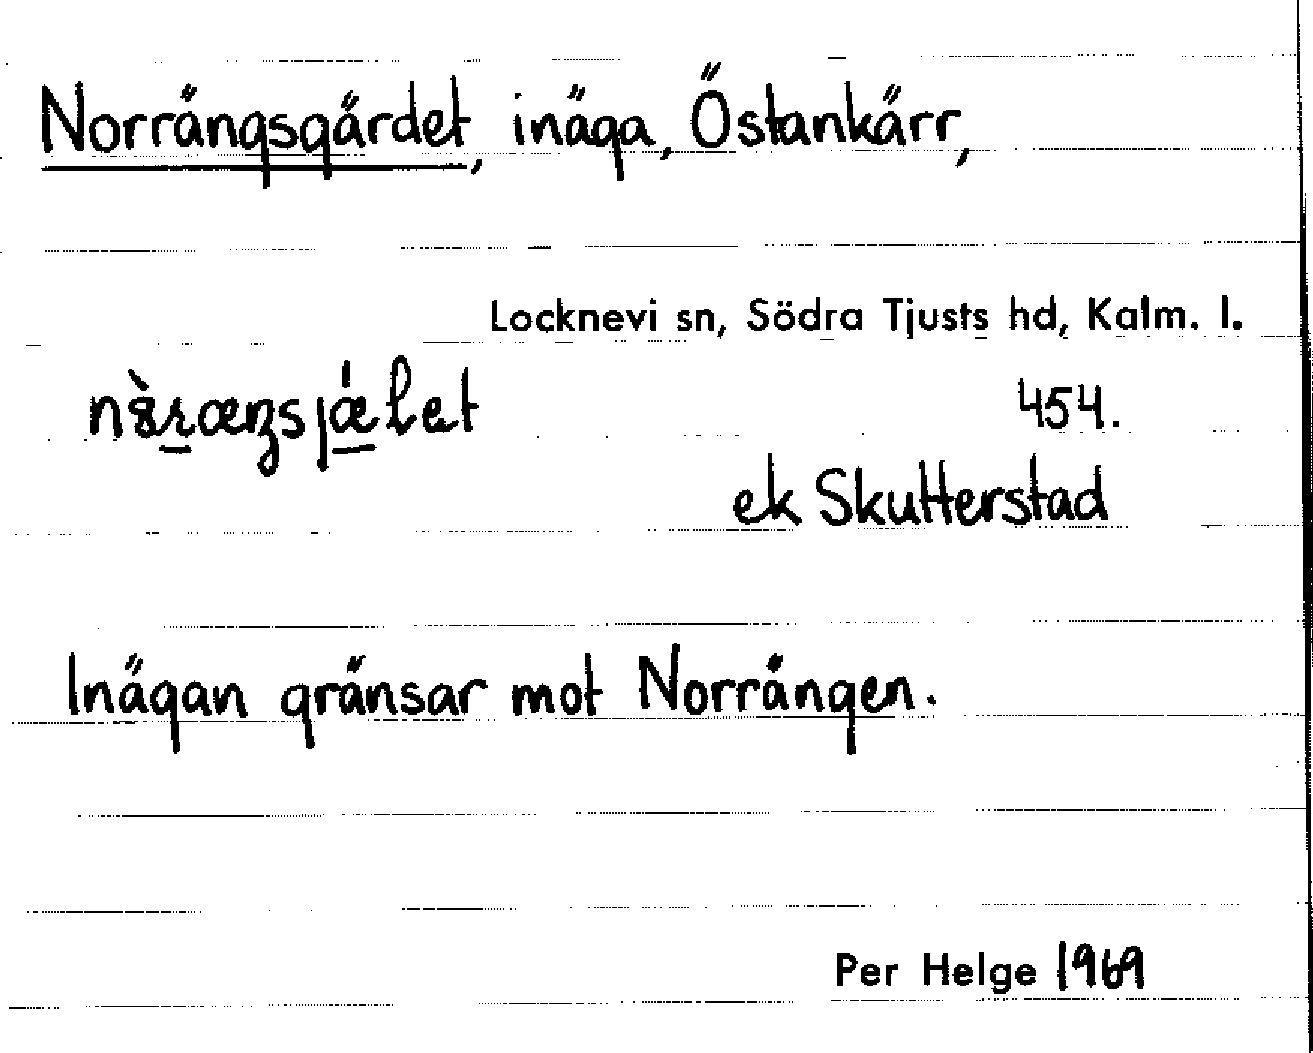 Norrängsgärdet, inäga, Östankärr,
Locknevi sn, Södra Tjusts hd, Kalm. l.
454.
ek Skutterstad
Inägan gränsar mot Norrängen.
Per Helge 1969